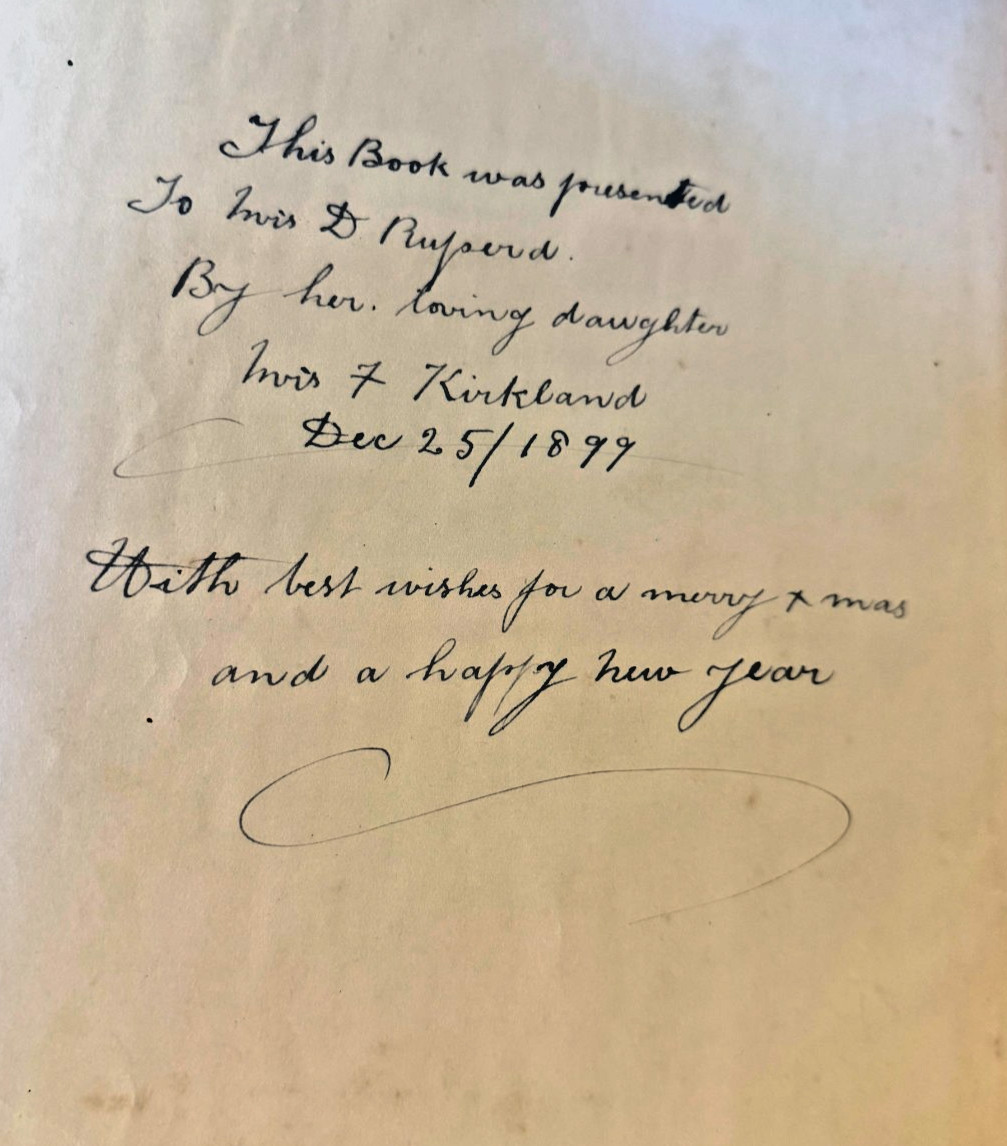 This Book was presented
To Mris D Ruperd.
By her. loving daughter
Mris F Kirkland
Dec 25/1899
With best wishes for a merry x mas
and a happy new year